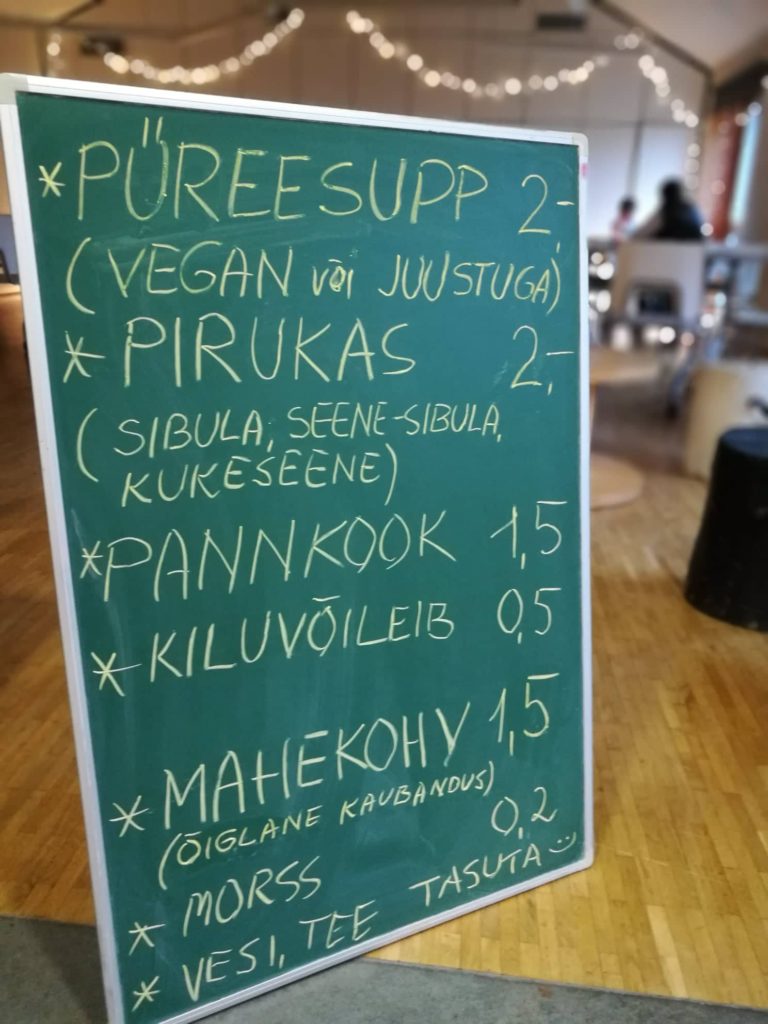 * PÜREESUPP 2,-
(VEGAN või JUUSTUGA)
* PIRUKAS 2,-
(SIBULA, SEENE-SIBULA,
KUKESEENE)
* PANNKOOK 1,5
* KILUVÕILEIB 0,5
* MAHEKOHV 1,5
(ÕIGLANE KAUBANDUS)
* MORSS 0,2
* VESI, TEE TASUTA :)